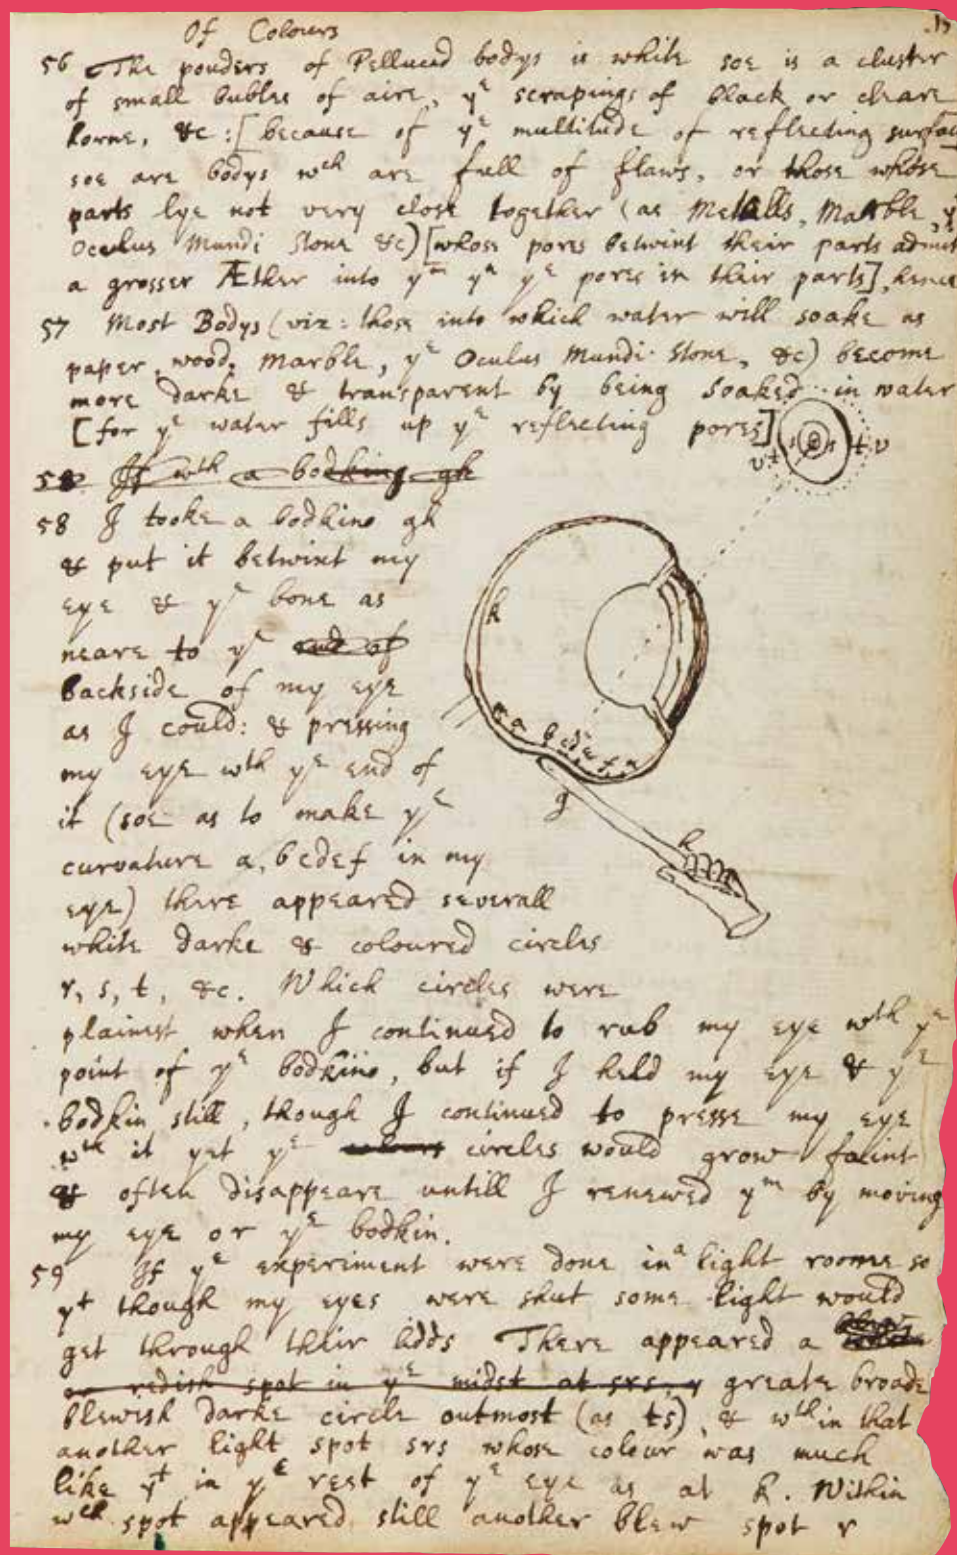 Of Colours
15
56 The pouders of Pellucid bodys is white soe is a cluster
of small bubles of aire, yᵉ scrapings of black or cleare
horne, &c: [because of yᵉ multitude of reflecting surfac
soe are bodys wᶜʰ are full of flaws, or those whose
parts lye not very close together (as Metalls, Marble, yᵉ
Oculus Mundi Stone &c) [whose pores betwixt their parts admit
a grosser Æther into yᵐ yⁿ yᵉ pores in their parts], hence
57 Most Bodys (viz: those into which water will soake as
paper, wood, marble, yᵉ Oculus Mundi Stone, &c) become
more darke & transparent by being soaked in water
[for yᵉ water fills up yᵉ reflecting pores]
58 If wᵗʰ a bodkine gh
58 I tooke a bodkine gh
& put it betwixt my
eye & yᵉ bone as
neare to yᵉ end of
backside of my eye
as I could: & pressing
my eye wᵗʰ yᵉ end of
it (soe as to make yᵉ
curvature a, bcdef in my
eye) there appeared severall
white darke & coloured circles
r, s, t, &c. Which circles were
plainest when I continued to rub my eye wᵗʰ yᵉ
point of yᵉ bodkine, but if I held my eye & yᵉ
bodkin still, though I continued to presse my eye
wᵗʰ it yet yᵉ colours circles would grow faint
& often disappeare untill I renewed yᵐ by moving
my eye or yᵉ bodkin.
59 If yᵉ experiment were done in a light roome so
yᵗ though my eyes were shut some light would
get through their lidds There appeared a
or redish spot in yᵉ midst at srs, y greate broade
blewish darke circle outmost (as ts), & wᵗʰin that
another light spot srs whose colour was much
like yᵗ in yᵉ rest of yᵉ eye as at k. Within
wᶜʰ spot appeared still another blew spot r
v t s r s t v
k
a b c d e f
g
h